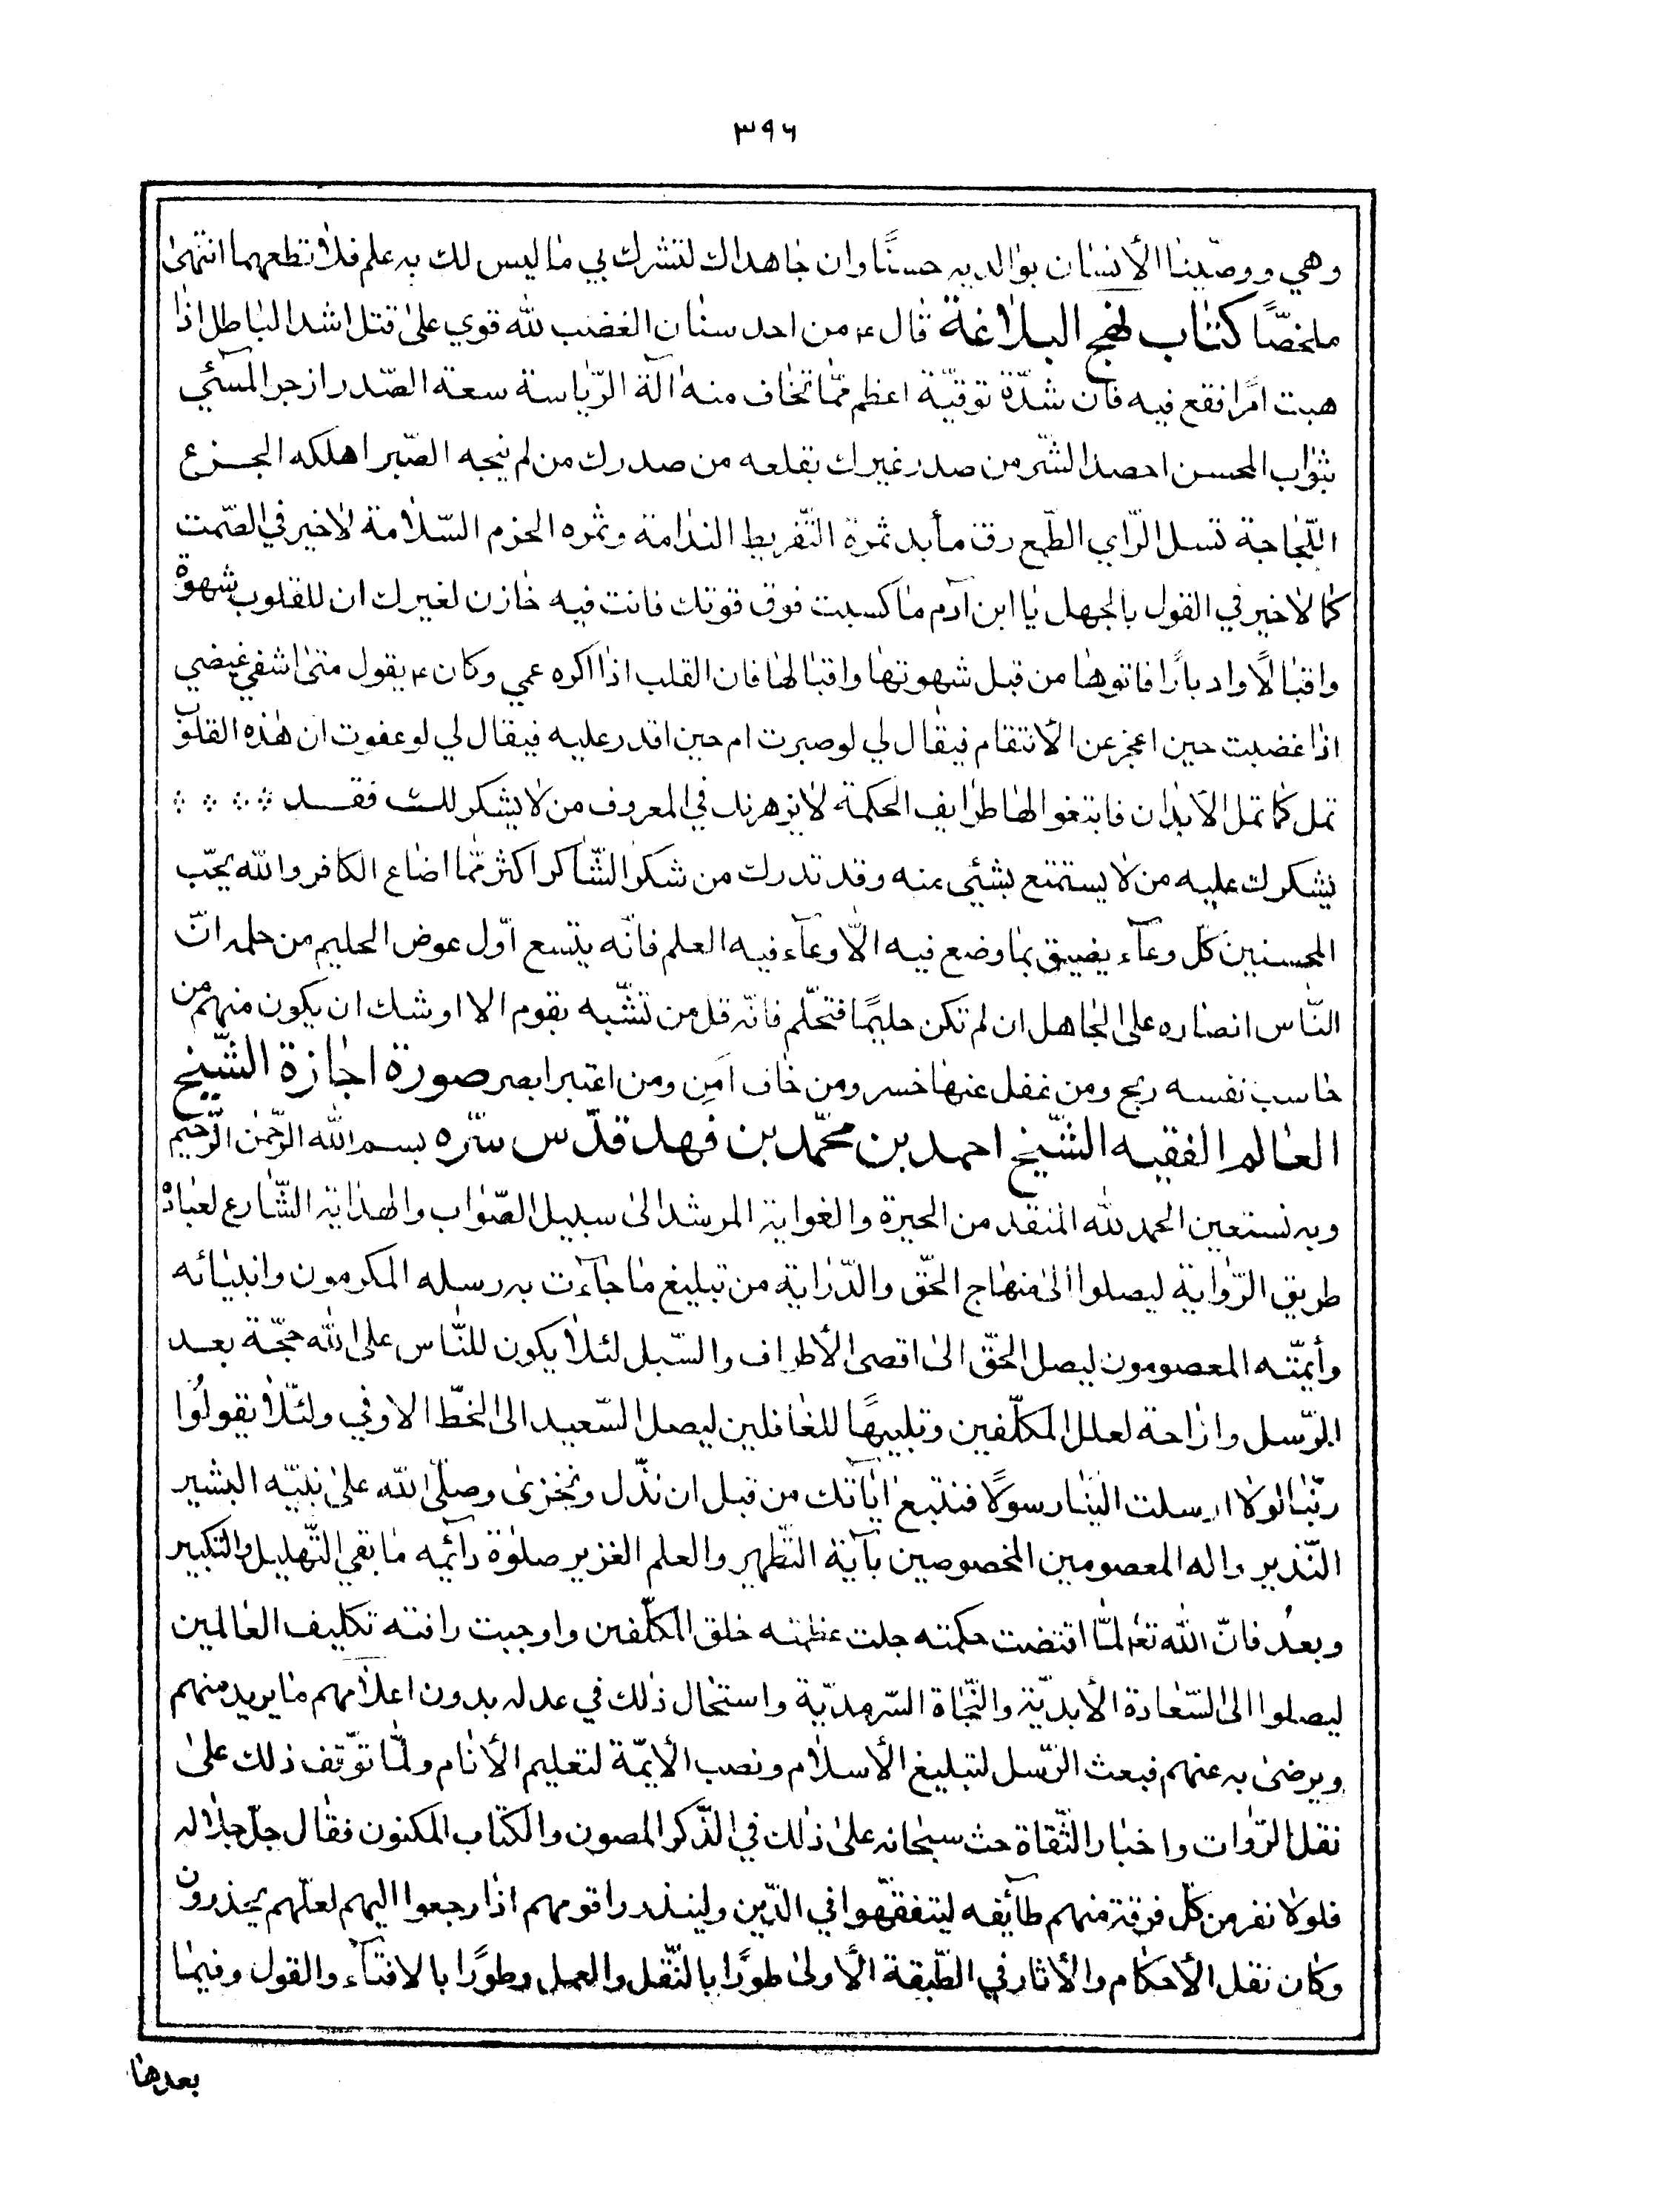 ٣٩٦
وهي ووصّينا الأنسان بوالديه حسنًا وان جاهداك لتشرك بي ما ليس لك به علم فلا تطعهما انتهى
ملخصًا كتاب نهج البلاغة قال ع من احد سنان الغضب لله قوي على قتل اشد الباطل اذا
هبت امرًا فقع فيه فانّ شدّة توقيّه اعظم ممّا تخاف منه آلة الرّياسة سعة الصّدر ازجر المسئي
بثواب المحسن احصد الشّر من صدر غيرك بقلعه من صدرك من لم ينجه الصّبر اهلكه الجزع
اللّجاجة تسل الرّاي الطّمع رق مأبد ثمرة التّفريط الندامة وثمره الحزم السّلامة لاخير في الصّمت
كما لا خير في القول بالجهل يا ابن آدم ما كسبت فوق قوتك فانت فيه خازن لغيرك ان للقلوب شهوة
واقبالًا وادبارًا فاتوها من قبل شهوتها واقبالها فان القلب اذا اكره عمي وكان ع يقول متى اشفي غيضي
اذا غضبت حين اعجز عن الأنتقام فيقال لي لو صبرت ام حين اقدر عليه فيقال لي لو عفوت ان هذه القلوب
تمل كما تمل الابدان فابتغوا لها طرايف الحكمة لا يزهدنك في المعروف من لا يشكر لك فقد
يشكرك عليه من لا يستمتع بشئي منه وقد تدرك من شكر الشّاكر اكثر ممّا اضاع الكافر والله يحبّ
المحسنين كلّ وعآء يضيق بما وضع فيه الّا وعآء فيه العلم فانّه يتسع اوّل عوض الحليم من حلمه انّ
النّاس انصاره على الجاهل ان لم تكن حليمًا فتحلّم فانّه قل من تشّبه بقوم الا اوشك ان يكون منهم من
حاسب نفسه ربح ومن غفل عنها خسر ومن خاف امن ومن اعتبر ابصر صورة اجازة الشّيخ
العالم الفقيه الشّيخ احمد بن محمّد بن فهد قدّس سّره بسم الله الرّحمن الرّحيم
وبه نستعين الحمد لله المنقد من الحيرة والغواية المرشد الى سبيل الصّواب والهداية الشّارع لعباده
طريق الرّواية ليصلوا الى منهاج الحقّ والدّراية من تبليغ ما جاءت به رسله المكرمون وانبيائه
وأيمّته المعصومون ليصل الحقّ الى اقصى الأطراف والسّبل لئلا يكون للنّاس على الله حجّة بعد
الرّسل وازاحة لعلل المكلّفين وتنبيهًا للغافلين ليصل السّعيد الى الخطّ الاوفي ولئلّا يقولُوا
ربّنا لولا ارسلت الينا رسولًا فنتبع اياتك من قبل ان نذّل ونخزى وصلّى الله على نبيّه البشير
النّذير واله المعصومين المخصوصين بآية التّطهير والعلم الغزير صلوة دآئمه ما بقي التّهليل والتكبير
وبعدُ فانّ الله تع لمّا اقتضت حكمته جلت عظمته خلق المكلّفين واوجبت رافته تكليف العالمين
ليصلوا الى السّعادة الأبديّة والنّجاة السّرمديّة واستحال ذلك في عدله بدون اعلامهم ما يريد منهم
ويرضى به عنهم فبعث الرّسل لتبليغ الأسلام ونصب الأيمّة لتعليم الأنام ولمّا توّقف ذلك على
نقل الرّوات واخبار الثّقاة حث سبحانه على ذلك في الذّكر المصون والكتاب المكنون فقال جلّ جلاله
فلولا نفر من كلّ فرقة منهم طآئفه ليتفقّهوا في الدّين ولينذروا قومهم اذا رجعوا اليهم لعلّهم يحذرون
وكان نقل الأحكام والأثار في الطّبقة الأولى طورًا بالنّقل والعمل وطورًا بالافتآء والقول وفيما
بعدها